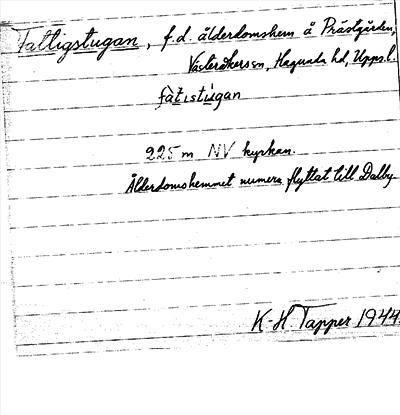 Fattigstugan, f.d. ålderdomshem å Prästgården,
Västeråkers sn, Hagunda hd, Upps.l.
fàtistùgan
225 m NV kyrkan.
Ålderdomshemmet numera flyttat till Dalby
K-H Tapper 1944.